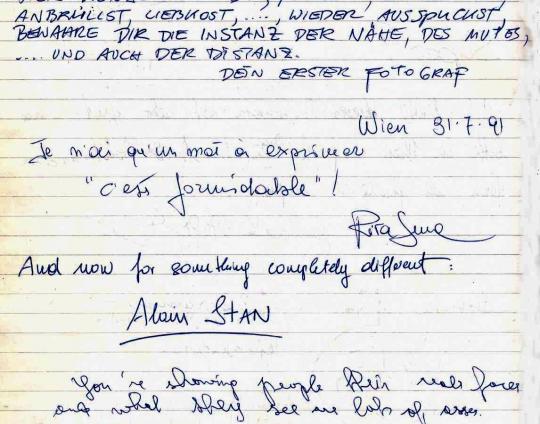 ANBRÜLLST, LIEBKOST, ...., WIEDER AUSSPUCKST,
BEWAHRE DIR DIE INSTANZ DER NÄHE, DES MUTES,
.... UND AUCH DER DISTANZ.
DEIN ERSTER FOTOGRAF
Wien 31.7.91
Je n'ai qu'un mot à exprimer
"c'est formidable"!
And now for something completely different:
Alain STAN
You're showing people their real faces
and what they see are lots of asses.